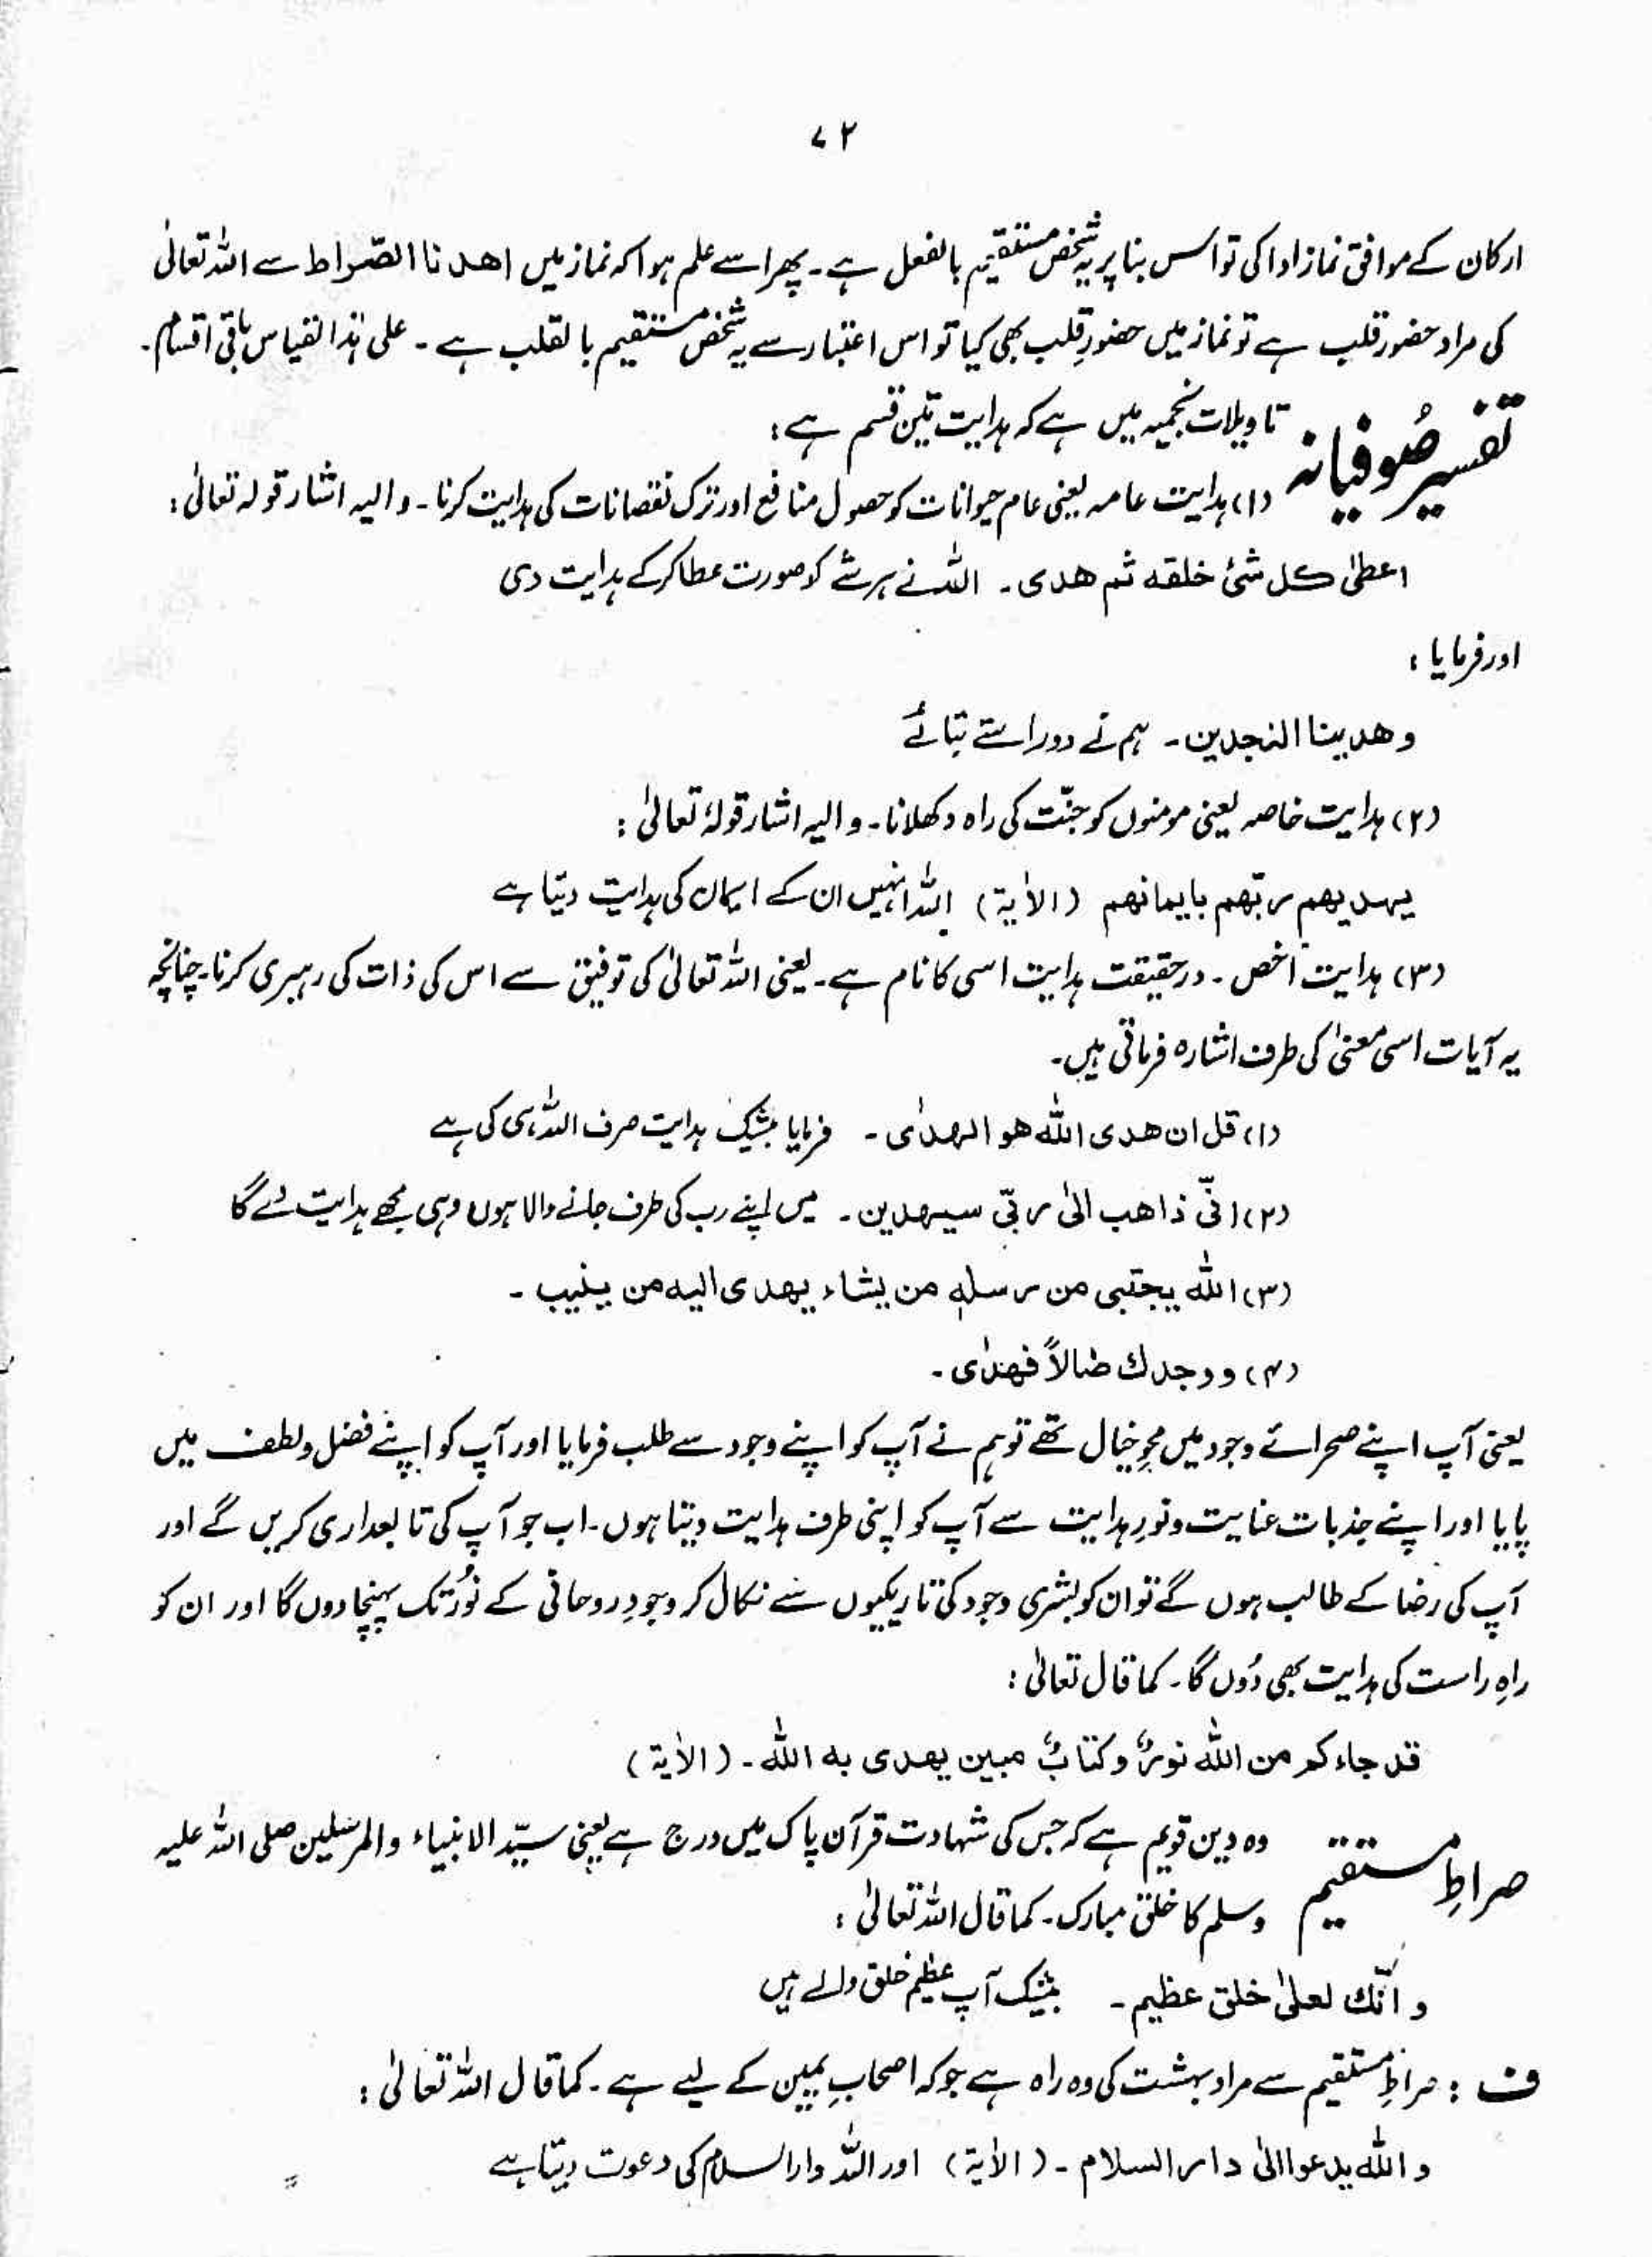 ۷۲
ارکان کے موافق نماز ادا کی تو اس بنا پر یہ شخص مستقیم بالفعل ہے۔ پھر اسے علم ہوا کہ نماز میں اھدنا الصّراط سے اللہ تعالیٰ
کی مراد حضور قلب ہے تو نماز میں حضورِ قلب بھی کیا تو اس اعتبار سے یہ شخص مستقیم بالقلب ہے۔ علی ہٰذا القیاس باقی اقسام۔
تفسیر صُوفیانہ تاویلات نجمیہ میں ہے کہ ہدایت تین قسم ہے:
(۱) ہدایت عامہ یعنی عام حیوانات کو حصول منافع اور ترک نقصانات کی ہدایت کرنا۔ والیہ اشار قولہ تعالیٰ:
اعطیٰ کل شیٔ خلقہ ثم ھدی۔ اللہ نے ہر شے کو صورت عطا کر کے ہدایت دی
اور فرمایا:
وھدینا النجدین۔ ہم نے دو راستے بتائے
(۲) ہدایت خاصہ یعنی مومنوں کو جنّت کی راہ دکھلانا۔ والیہ اشار قولہٗ تعالیٰ:
یہدیھم ربّھم بایمانھم (الاٰیۃ) اللہ انہیں ان کے ایمان کی ہدایت دیتا ہے
(۳) ہدایت اخص۔ درحقیقت ہدایت اسی کا نام ہے۔ یعنی اللہ تعالیٰ کی توفیق سے اس کی ذات کی رہبری کرنا۔ چنانچہ
یہ آیات اسی معنیٰ کی طرف اشارہ فرماتی ہیں۔
(۱) قل ان ھدی اللّٰہ ھو الہدٰی۔ فرمایا بیشک ہدایت صرف اللہ ہی کی ہے
(۲) انّی ذاھب الیٰ ربّی سیہدین۔ میں اپنے رب کی طرف جانے والا ہوں وہی مجھے ہدایت دے گا
(۳) اللّٰہ یجتبی من رسلہٖ من یشاء یھدی الیہ من ینیب۔
(۴) ووجدك ضالاً فھدٰی۔
یعنی آپ اپنے صحرائے وجود میں محوِ خیال تھے تو ہم نے آپ کو اپنے وجود سے طلب فرمایا اور آپ کو اپنے فضل و لطف میں
پایا اور اپنے جذبات عنایت و نورِ ہدایت سے آپ کو اپنی طرف ہدایت دیتا ہوں۔ اب جو آپ کی تابعداری کریں گے اور
آپ کی رضا کے طالب ہوں گے تو ان کو بشری وجود کی تاریکیوں سے نکال کر وجودِ روحانی کے نُور تک پہنچا دوں گا اور ان کو
راہِ راست کی ہدایت بھی دُوں گا۔ کما قال تعالیٰ:
قد جاءکم من اللّٰہ نورٌ وکتابٌ مبین یھدی بہ اللّٰہ۔ (الاٰیۃ)
صراطِ مستقیم وہ دین قویم ہے کہ جس کی شہادت قرآن پاک میں درج ہے یعنی سیّد الانبیاء والمرسلین صلی اللہ علیہ
وسلم کا خلق مبارک۔ کما قال اللہ تعالیٰ:
وانّك لعلیٰ خلق عظیم۔ بیشک آپ عظیم خلق والے ہیں
ف: صراطِ مستقیم سے مراد بہشت کی وہ راہ ہے جو کہ اصحابِ یمین کے لیے ہے۔ کما قال اللہ تعالیٰ:
واللّٰہ یدعوا الیٰ دار السلام۔ (الاٰیۃ) اور اللہ دار السلام کی دعوت دیتا ہے